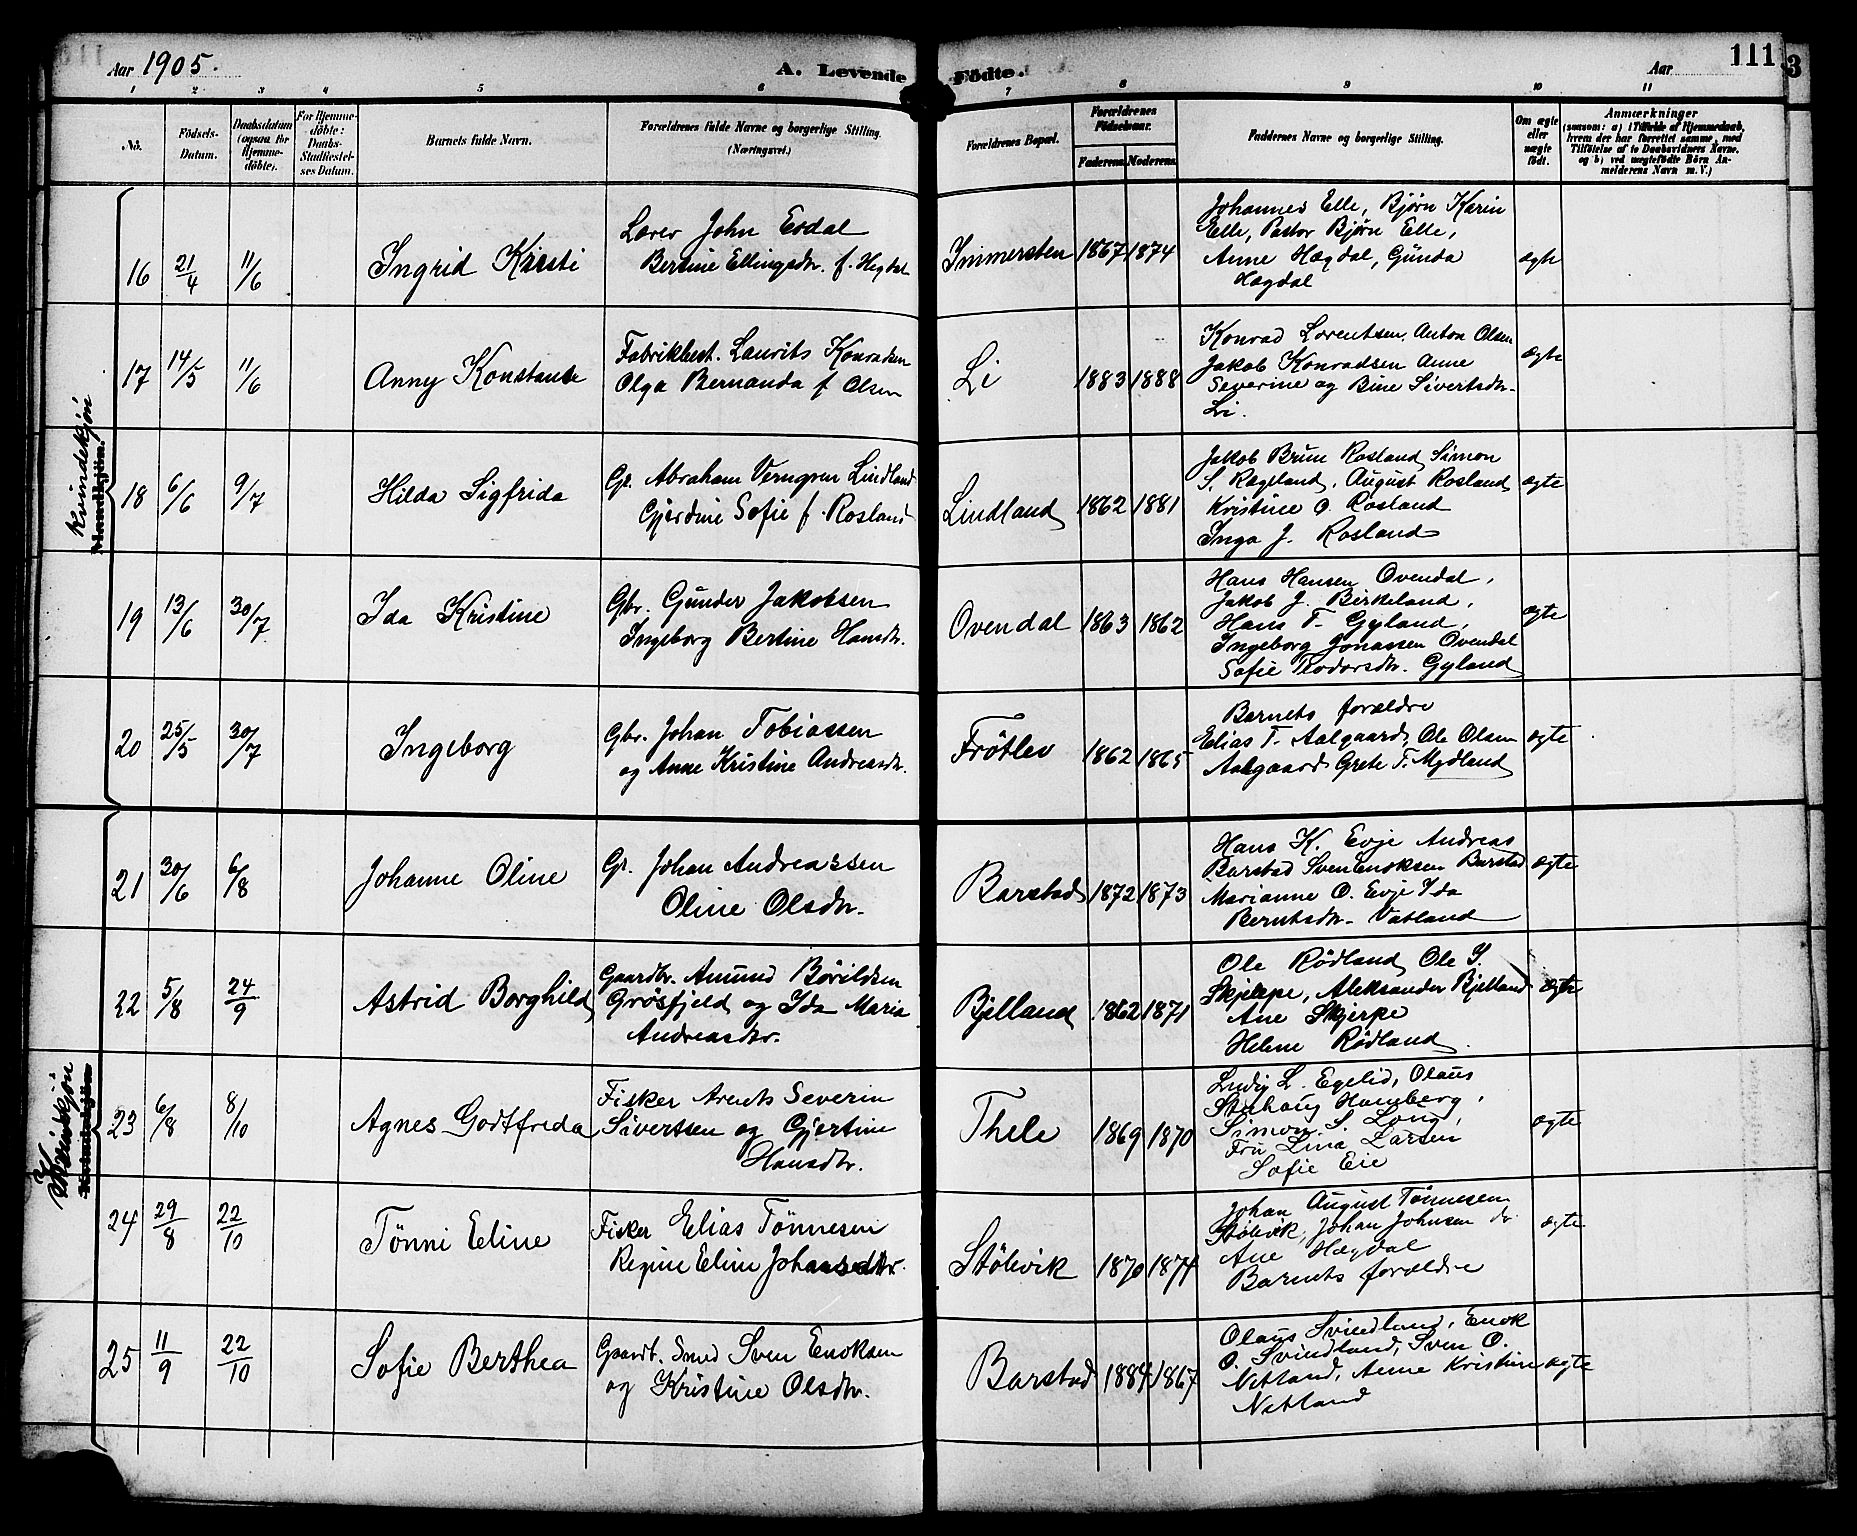 Aar 1905.
A. Levende Födte.
Aar
111
3
1 2 3 4 5 6 7 8 9 10 11
No.
Födsels-
Datum.
Daabsdatum
(ogsaa for
Hjemme-
döbte).
For Hjemme-
döbte:
Daabs-
Stadfæstel-
ses Datum.
Barnets fulde Navn.
Forældrenes fulde Navne og borgerlige Stilling.
(Næringsvei.)
Forældrenes Bopæl.
Forældrenes
Födselsaar.
Faderens. Moderens.
Faddernes Navne og borgerlige Stilling.
Om ægte
eller
uægte
födt.
Anmærkninger
(saasom: a) i Tilfælde af Hjemmedaab,
hvem der har forrettet samme, med
Tilföielse af to Daabsvidners Navne,
og b) ved uægtefödte Börn An-
melderens Navn m. V.)
Kvindekjön
Mandkjön.
16 21/4 11/6 Ingrid Kirsti
Lærer John Esdal
Bertine Ellingsdtr. f. Hegdal
Immersten 1867 1874
Johannes Elle, Bjørn Karin
Elle, Pastor Bjørn Elle,
Anne Hægdal, Gunda
Hægdal
ægte
17 14/5 11/6 Anny Konstanse
Fabrikbest. Laurits Konradsen
Olga Bernanda f Olsen
Li 1883 1888
Konrad Lorentsen, Anton Olsen
Jakob Konradsen Anne
Severine og Bine Sivertsdtr.
Li.
ægte
18 6/6 9/7 Hilda Sigfrida
Gr. Abraham Verngren Lindland
Gjerdine Sofie f. Rosland
Lindland 1862 1881
Jakob Brun Rosland Simon
S. Rægeland, August Rosland
Kristine O. Rosland
Inga J. Rosland
ægte
19 13/6 30/7 Ida Kristine
Gbr. Gunder Jakobsen
Ingeborg Bertine Hansdtr.
Ovendal 1863 1862
Hans Hansen Ovendal,
Jakob J. Birkeland,
Hans T. Gyland,
Ingeborg Jonassen Ovendal
Sofie Teodorsdtr. Gyland
ægte
20 25/5 30/7 Ingeborg
Gbr. Johan Tobiassen
og Anne Kristine Andreasdtr.
Frötlev 1862 1865
Barnets forældre
Elias T. Aalgaard, Ole Olsen
Aalgaard Grete T. Mydland
ægte
Kvindekjön
21 30/6 6/8 Johanne Oline
Gr. Johan Andreassen
Oline Olsdtr.
Barstad 1872 1873
Hans K. Evje Andreas
Barstad Sven Enoksen Barstad
Marianne O. Evje Ida
Berntsdtr. Vatland
ægte
22 5/8 24/9 Astrid Borghild
Gaardbr. Amund Börildsen
Grösfjeld og Ida Maria
Andreasdtr.
Bjelland 1862 1871
Ole Rødland, Ole S.
Skjerpe, Aleksander Bjelland
Ane Skjerpe
Helene Rødland.
ægte
23 6/8 8/10 Agnes Godtfreda
Fisker Arents Severin
Sivertsen og Gjertine
Hansdtr.
Thele 1869 1870
Ludvig L. Egelid, Olaus
Stuhaug Hamberg,
Simon S. Long,
Fru Lina Larsen
Sofie Eie
ægte
24 29/8 22/10 Tönni Eline
Fisker Elias Tönnesen
Regine Eline Johansdtr.
Stölevik 1870 1874
Johan August Tönnesen
Stölevik, Johan Johnsen do.
Ane Hægdal
Barnets forældre
ægte
25 11/9 22/10 Sofie Berthea
Gaardb. Smed Sven Enoksen
og Kristine Olsdtr.
Barstad 1884 1867
Olaus Svindland, Enok
O. Svindland, Sven O.
Netland, Anne Kristine
Netland
ægte